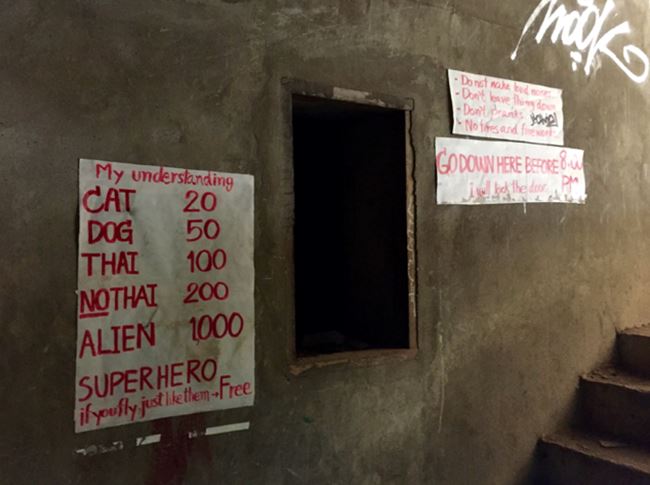 My understanding
CAT 20
DOG 50
THAI 100
NO THAI 200
ALIEN 1,000
SUPERHERO
if you fly just like them → Free
- Do not make loud noises
- Don't leave thing down
- Don't
- No fires and fireworks
GO DOWN HERE BEFORE 8
PM
i will lock the door